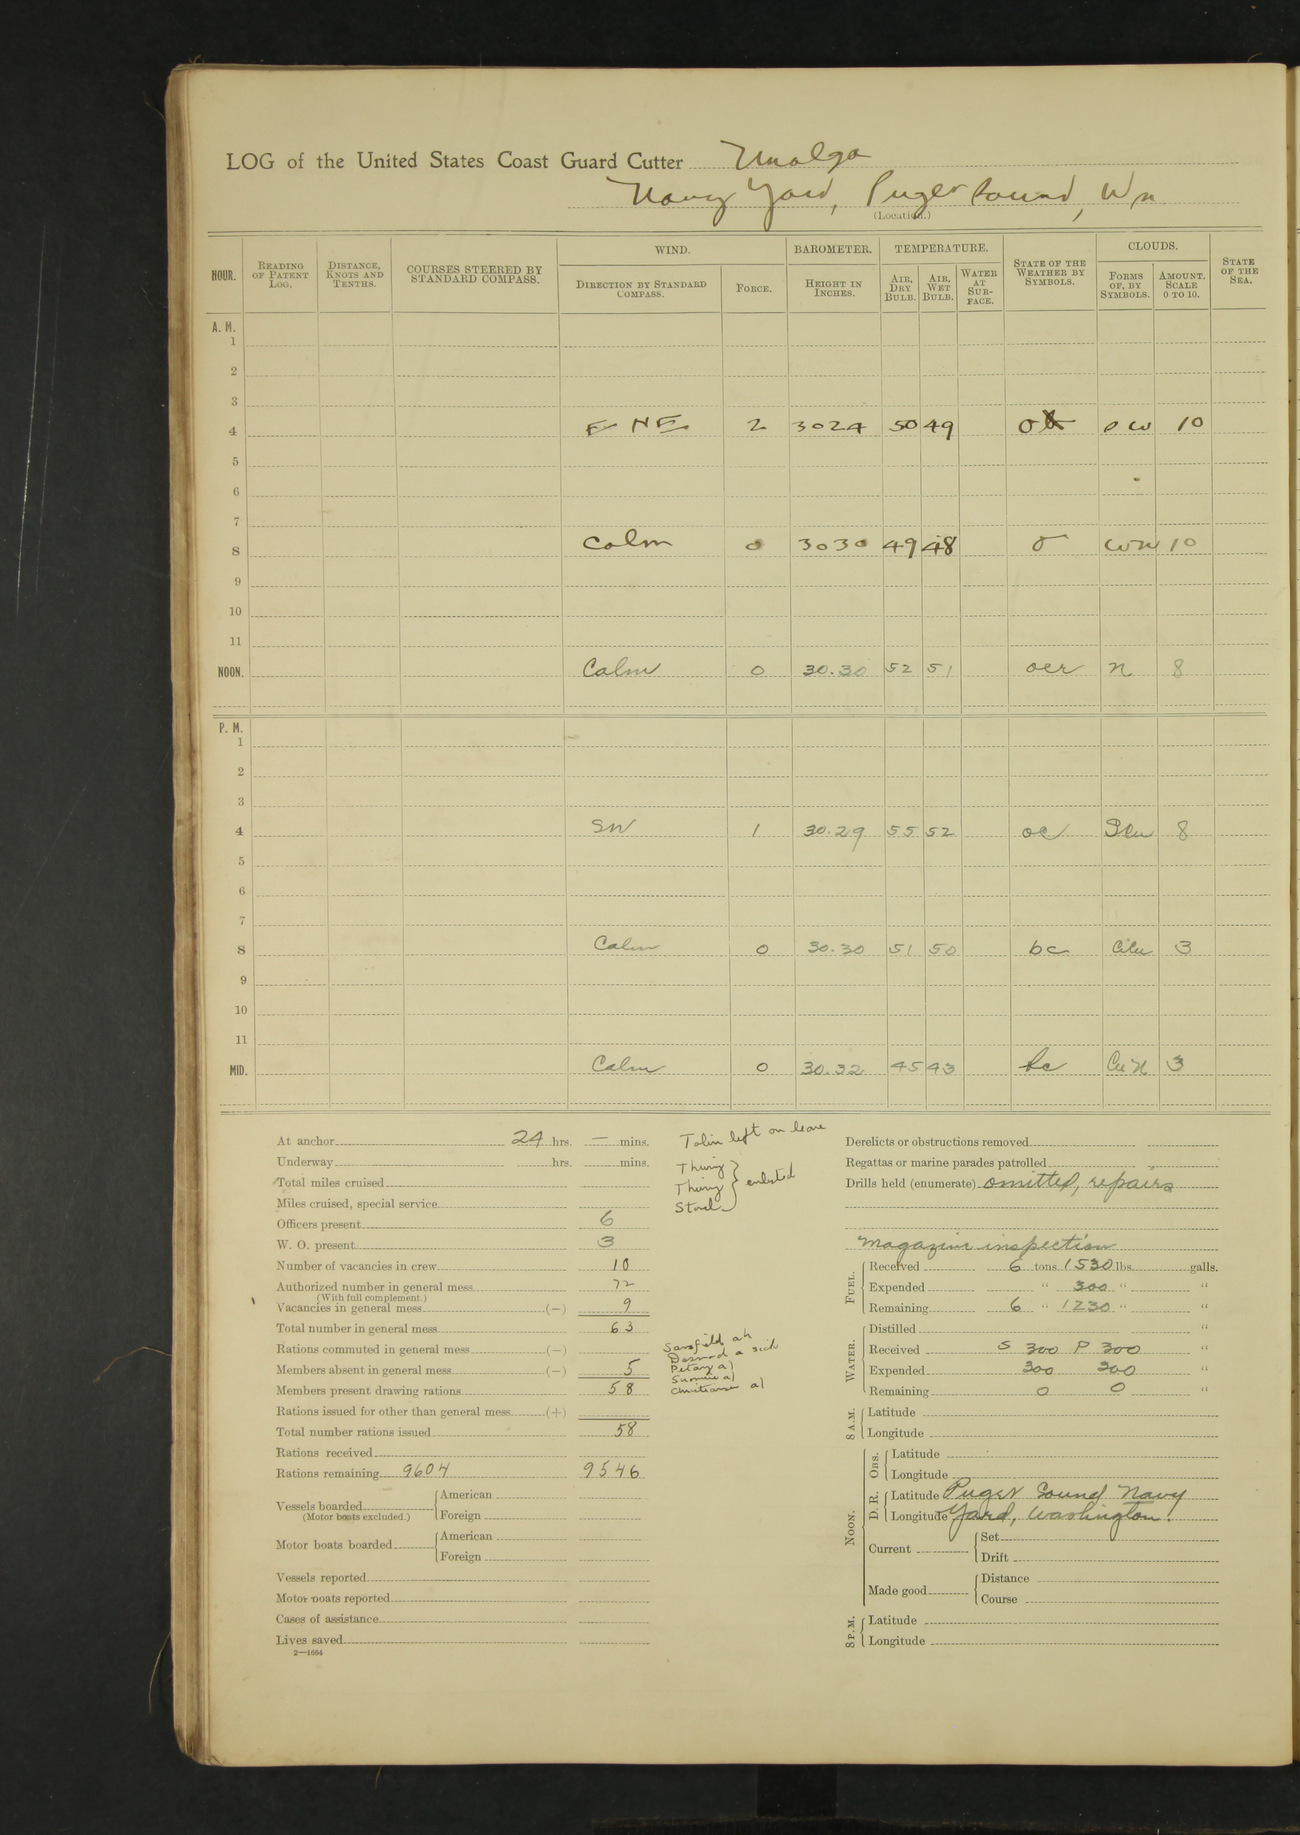 LOG of the United States Coast Guard Cutter Unalga
Navy Yard, Puget Sound, Wn
(Location.)
HOUR. READING OF PATENT LOG. DISTANCE, KNOTS AND TENTHS. COURSES STEERED BY STANDARD COMPASS. WIND. DIRECTION BY STANDARD COMPASS. FORCE. BAROMETER. HEIGHT IN INCHES. TEMPERATURE. AIR, DRY BULB. AIR, WET BULB. WATER AT SURFACE. STATE OF THE WEATHER BY SYMBOLS. CLOUDS. FORMS OF, BY SYMBOLS. AMOUNT. SCALE 0 TO 10. STATE OF THE SEA.
A. M.
1
2
3
4 E NE 2 3024 50 49 o 10
5
6
7
8 Calm 0 3030 49 48 o 10
9
10
11
NOON. Calm 0 30.30 52 51 ocr N 8
P. M.
1
2
3
4 SW 1 30.29 55 52 oc 8
5
6
7
8 Calm 0 30.30 51 50 bc 3
9
10
11
MID. Calm 0 30.32 45 43 bc Cu N 3
At anchor 24 hrs. — mins.
Underway hrs. mins.
Total miles cruised
Miles cruised, special service
Officers present 6
W. O. present 3
Number of vacancies in crew 10
Authorized number in general mess 72
(With full complement.)
Vacancies in general mess (—) 9
Total number in general mess 63
Rations commuted in general mess (—)
Members absent in general mess (—) 5
Members present drawing rations 58
Rations issued for other than general mess (+)
Total number rations issued 58
Rations received
Rations remaining 9604 9546
Vessels boarded American
(Motor boats excluded.) Foreign
Motor boats boarded American
Foreign
Vessels reported
Motor boats reported
Cases of assistance
Lives saved
2—1664
Tobin left on leave
Thuig
Thuig enlisted
Sansfield ah
sick
Petary al
al
Christianse al
Derelicts or obstructions removed
Regattas or marine parades patrolled
Drills held (enumerate) omitted, repairs
Magazine inspection
FUEL. Received 6 tons 1530 lbs. galls.
Expended " 300 " "
Remaining 6 " 1230 " "
WATER. Distilled "
Received S 300 P 300 "
Expended 300 300 "
Remaining 0 0 "
8 A.M. Latitude
Longitude
NOON. Obs. Latitude
Longitude
D. R. Latitude Puget Sound Navy
Longitude Yard, Washington.
Current Set
Drift
Made good Distance
Course
8 P.M. Latitude
Longitude